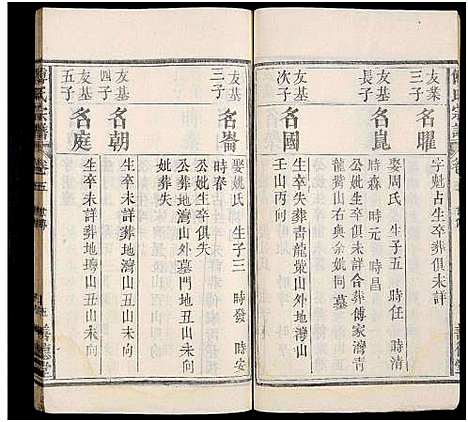 友業
三子
名曜
字魁占生卒葬俱未詳
友基
長子
名崑
娶周氏 生子五 時任 時清
時森 時元 時昌
公妣生卒未詳合葬傅家灣青
龍嘴山右與余姚同墓
友基
次子
名國
生卒失葬青龍嘴山外地灣山
壬山丙向
友基
三子
名崙
娶姚氏 生子三 時發 時安
時春
公妣生卒俱失
公葬地灣山外墓門地丑山未向
妣葬失
友基
四子
名朝
生卒未詳葬地灣山丑山未向
友基
五子
名庭
生卒未詳葬地灣山丑山未向
傅氏宗譜
卷五
善德堂